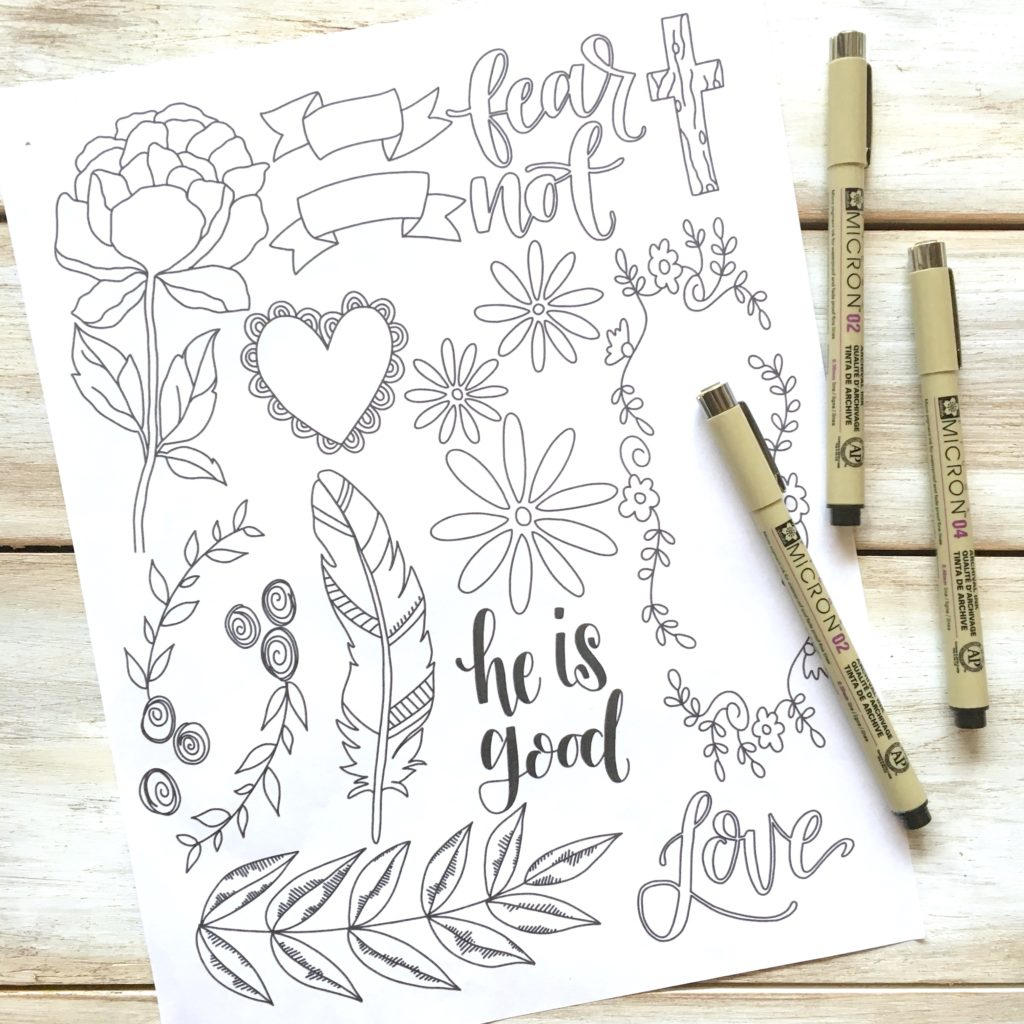 fear
not
he is
good
love
MICRON™ 02
QUALITÉ D'ARCHIVAGE
TINTA DE ARCHIVE
AP
MICRON™ 04
ARCHIVAL INK
QUALITÉ D'ARCHIVAGE
TINTA DE ARCHIVE
AP
MICRON™ 02
QUALITÉ D'ARCHIVAGE
TINTA DE ARCHIVE
AP